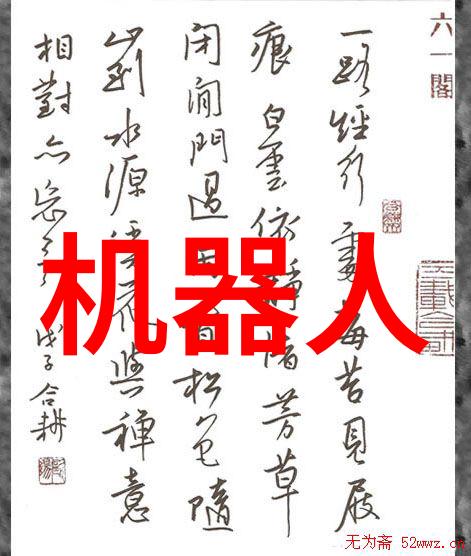 六一閣
一路經行處莓苔見屐
痕白雲依靜渚芳草
閉閒門過松色隨
山到水源花與禪意
相對亦忘言戊子合耕
机器人
无为斋 52wwz.c